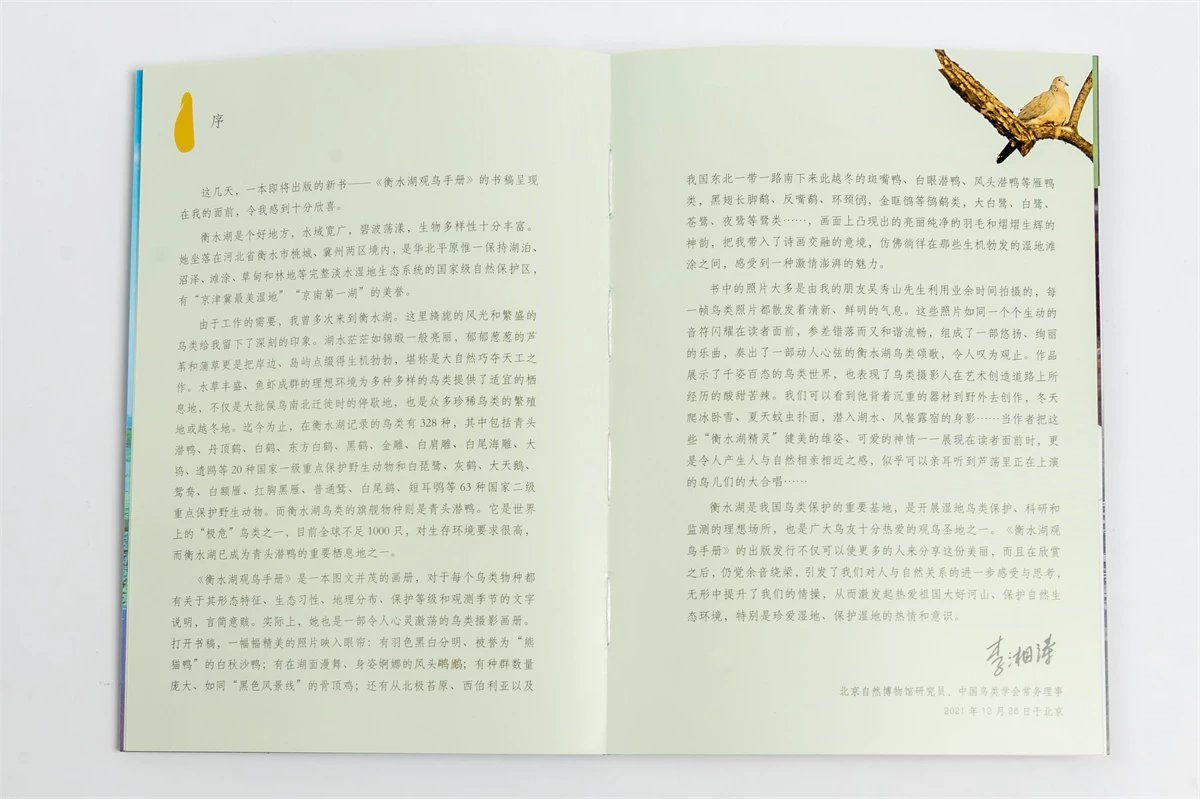 序
这几天，一本即将出版的新书——《衡水湖观鸟手册》的书稿呈现
在我的面前，令我感到十分欣喜。
衡水湖是个好地方，水域宽广，碧波荡漾，生物多样性十分丰富。
她坐落在河北省衡水市桃城、冀州两区境内，是华北平原惟一保持湖泊、
沼泽、滩涂、草甸和林地等完整淡水湿地生态系统的国家级自然保护区，
有“京津冀最美湿地”“京南第一湖”的美誉。
由于工作的需要，我曾多次来到衡水湖。这里旖旎的风光和繁盛的
鸟类给我留下了深刻的印象。湖水茫茫如锦缎一般亮丽，郁郁葱葱的芦
苇和蒲草更是把岸边、岛屿点缀得生机勃勃，堪称是大自然巧夺天工之
作。水草丰盛、鱼虾成群的理想环境为多种多样的鸟类提供了适宜的栖
息地，不仅是大批候鸟南北迁徙时的停歇地，也是众多珍稀鸟类的繁殖
地或越冬地。迄今为止，在衡水湖记录的鸟类有328种，其中包括青头
潜鸭、丹顶鹤、白鹤、东方白鹳、黑鹳、金雕、白肩雕、白尾海雕、大
鸨、遗鸥等20种国家一级重点保护野生动物和白琵鹭、灰鹤、大天鹅、
鸳鸯、白额雁、红胸黑雁、普通鵟、白尾鹞、短耳鸮等63种国家二级
重点保护野生动物。而衡水湖鸟类的旗舰物种则是青头潜鸭。它是世界
上的“极危”鸟类之一，目前全球不足1000只，对生存环境要求很高，
而衡水湖已成为青头潜鸭的重要栖息地之一。
《衡水湖观鸟手册》是一本图文并茂的画册，对于每个鸟类物种都
有关于其形态特征、生态习性、地理分布、保护等级和观测季节的文字
说明，言简意赅。实际上，她也是一部令人心灵激荡的鸟类摄影画册。
打开书稿，一幅幅精美的照片映入眼帘：有羽色黑白分明、被誉为“熊
猫鸭”的白秋沙鸭；有在湖面漫舞、身姿婀娜的凤头䴙䴘；有种群数量
庞大、如同“黑色风景线”的骨顶鸡；还有从北极苔原、西伯利亚以及
我国东北一带一路南下来此越冬的斑嘴鸭、白眼潜鸭、凤头潜鸭等雁鸭
类，黑翅长脚鹬、反嘴鹬、环颈鸻、金眶鸻等鸻鹬类，大白鹭、白鹭、
苍鹭、夜鹭等鹭类……，画面上凸现出的亮丽纯净的羽毛和熠熠生辉的
神韵，把我带入了诗画交融的意境，仿佛徜徉在那些生机勃发的湿地滩
涂之间，感受到一种激情澎湃的魅力。
书中的照片大多是由我的朋友吴秀山先生利用业余时间拍摄的，每
一帧鸟类照片都散发着清新、鲜明的气息。这些照片如同一个个生动的
音符闪耀在读者面前，参差错落而又和谐流畅，组成了一部悠扬、绚丽
的乐曲，奏出了一部动人心弦的衡水湖鸟类颂歌，令人叹为观止。作品
展示了千姿百态的鸟类世界，也表现了鸟类摄影人在艺术创造道路上所
经历的酸甜苦辣。我们可以看到他背着沉重的器材到野外去创作，冬天
爬冰卧雪、夏天蚊虫扑面，潜入湖水、风餐露宿的身影……当作者把这
些“衡水湖精灵”健美的雄姿、可爱的神情一一展现在读者面前时，更
是令人产生人与自然相亲相近之感，似乎可以亲耳听到芦荡里正在上演
的鸟儿们的大合唱……
衡水湖是我国鸟类保护的重要基地，是开展湿地鸟类保护、科研和
监测的理想场所，也是广大鸟友十分热爱的观鸟圣地之一。《衡水湖观
鸟手册》的出版发行不仅可以使更多的人来分享这份美丽，而且在欣赏
之后，仍觉余音绕梁，引发了我们对人与自然关系的进一步感受与思考，
无形中提升了我们的情操，从而激发起热爱祖国大好河山、保护自然生
态环境，特别是珍爱湿地、保护湿地的热情和意识。
李湘涛
北京自然博物馆研究员、中国鸟类学会常务理事
2021年12月28日于北京